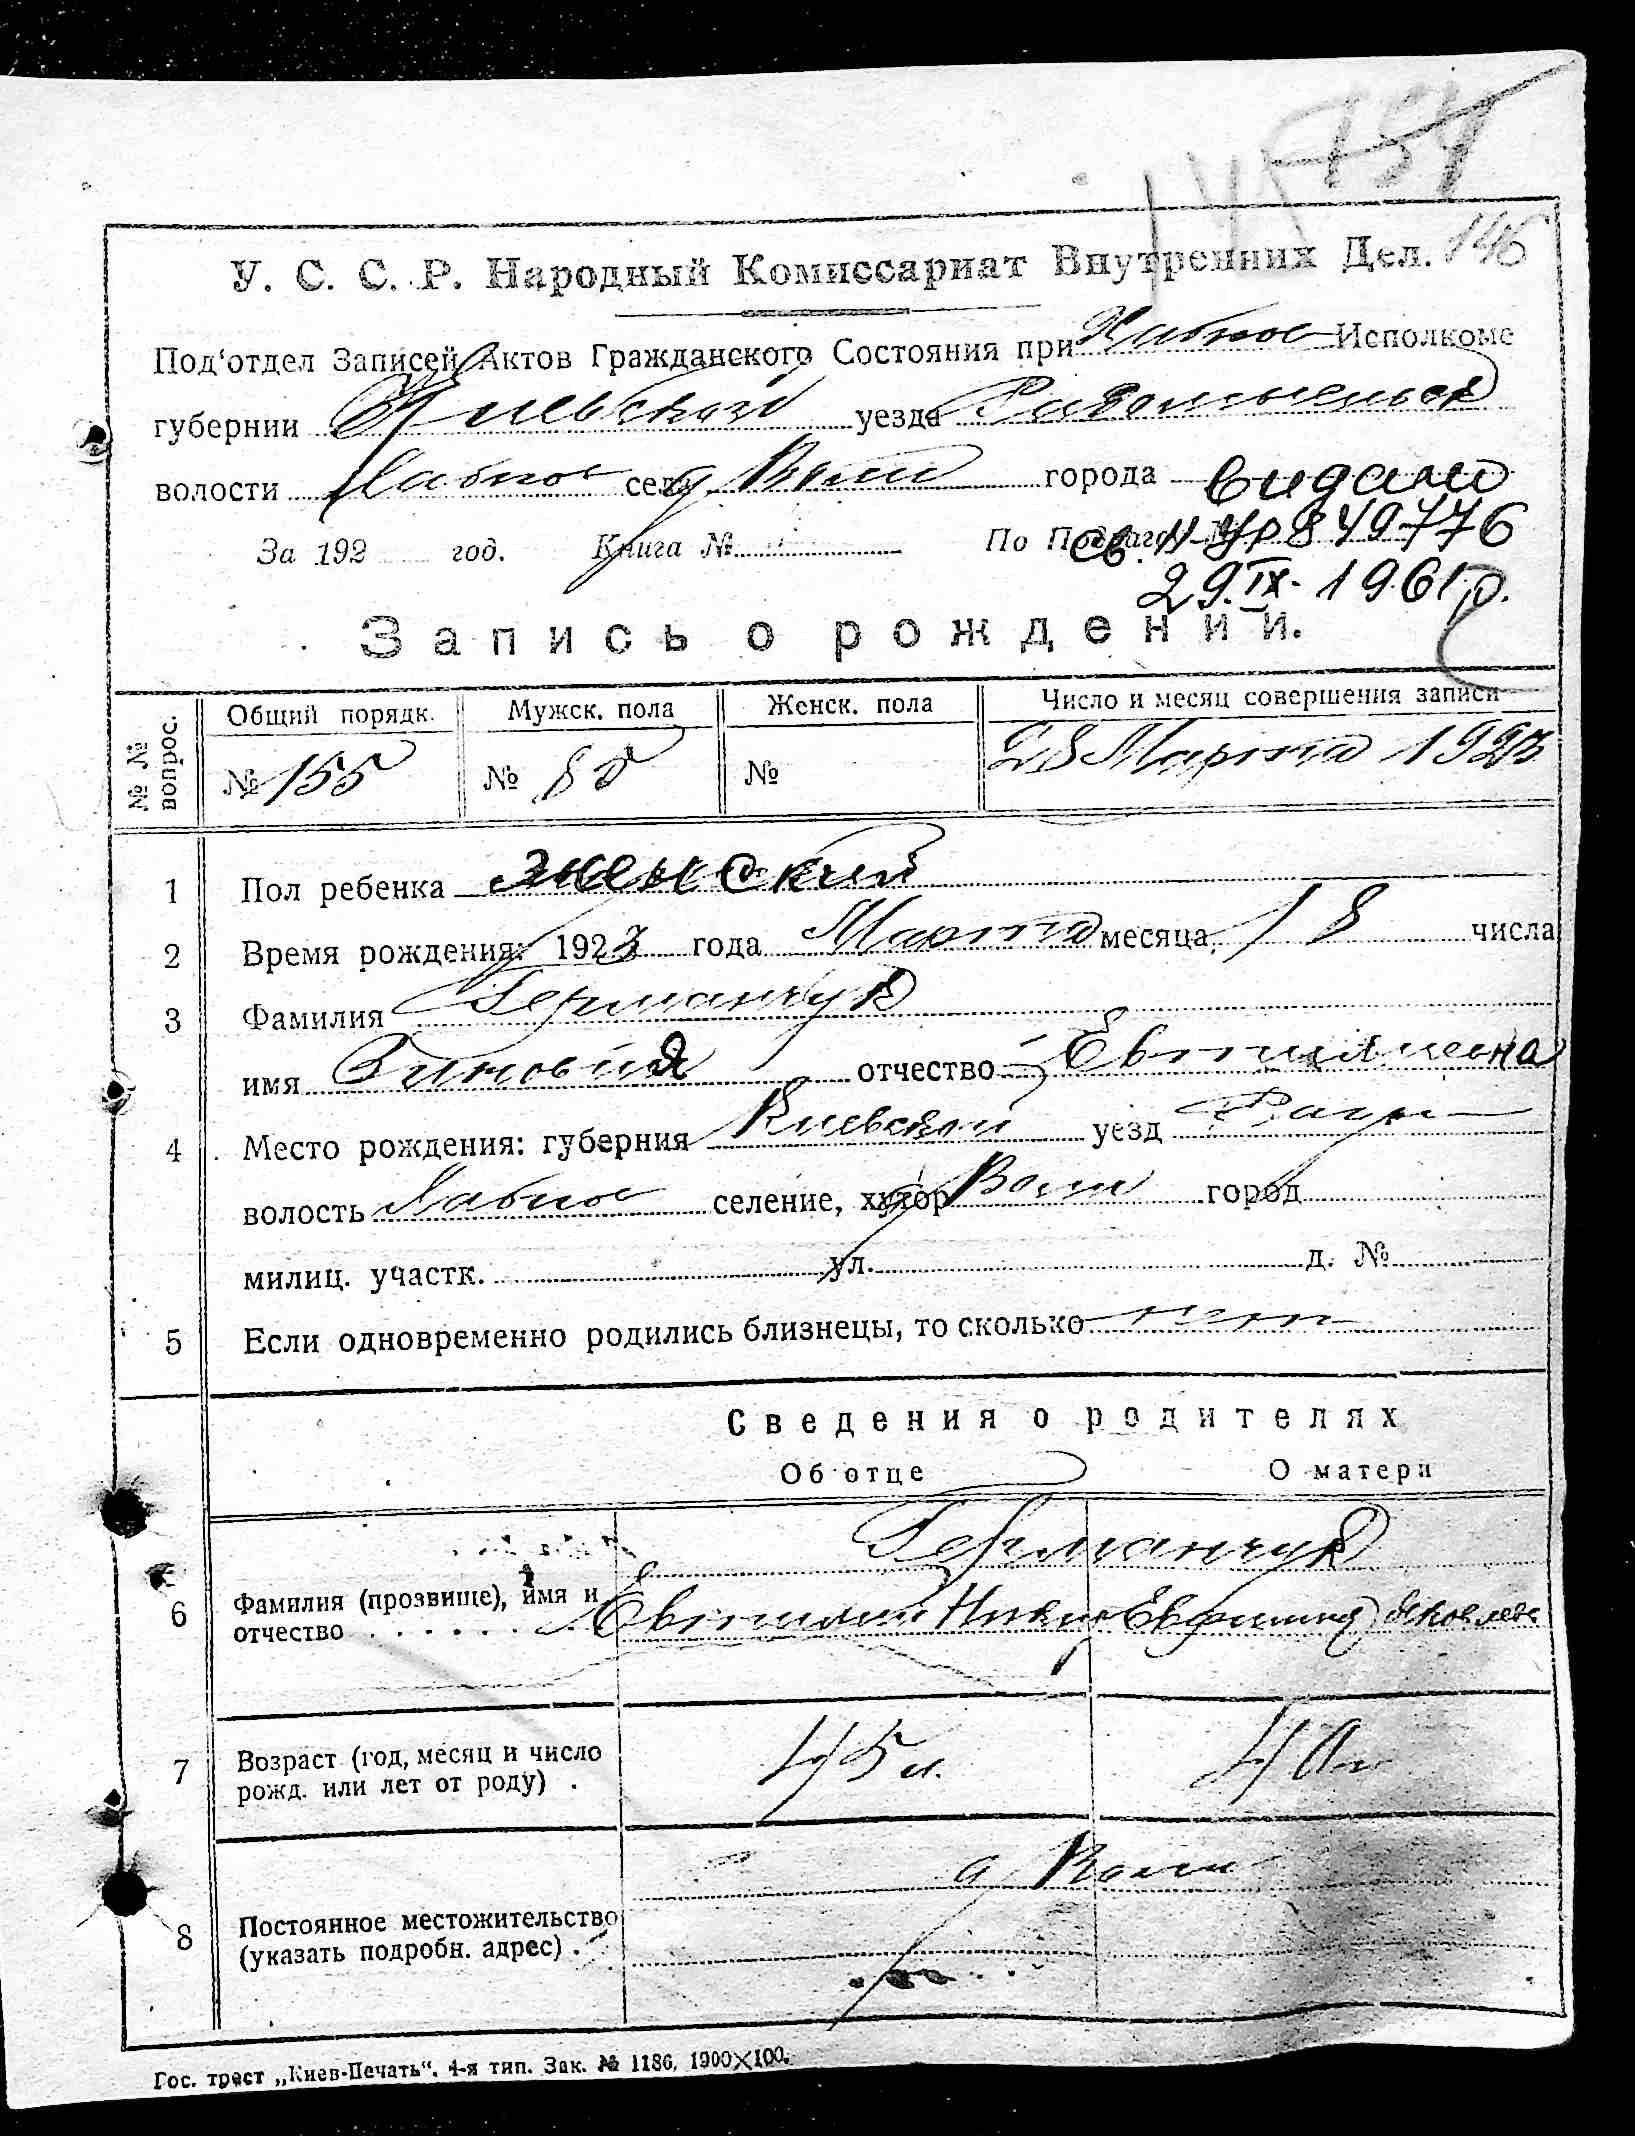 154
146
У. С. С. Р. Народный Комиссариат Внутренних Дел.
Под‘отдел Записей Актов Гражданского Состояния при Хабное Исполкоме
губернии Киевской уезда Радомысльск
волости Хабное села Вили города видано
За 192 год. Книга № По Под св. № УР 849776
29.IX.1961 р.
Запись о рождении.
№ № вопрос. Общий порядк. Мужск. пола Женск. пола Число и месяц совершения записи
№ 155 № 85 № 28 Марта 1923
1 Пол ребенка женский
2 Время рождения: 1923 года Марта месяца 18 числа
3 Фамилия Германчук
имя Зиновия отчество Евтихиевна
4 Место рождения: губерния Киевской уезд
волость Хабное селение, хутор город
милиц. участк. ул. д. №
5 Если одновременно родились близнецы, то сколько нет
Сведения о родителях
Об отце О матери
Германчук
6 Фамилия (прозвище), имя и
отчество . . . . . . Евфимия Яковлева
7 Возраст (год, месяц и число
рожд. или лет от роду) . 45 л. 40 л
8 Постоянное местожительство
(указать подробн. адрес) .
Гос. трест „Киев-Печать“. 4-я тип. Зак. № 1186. 1900×100.